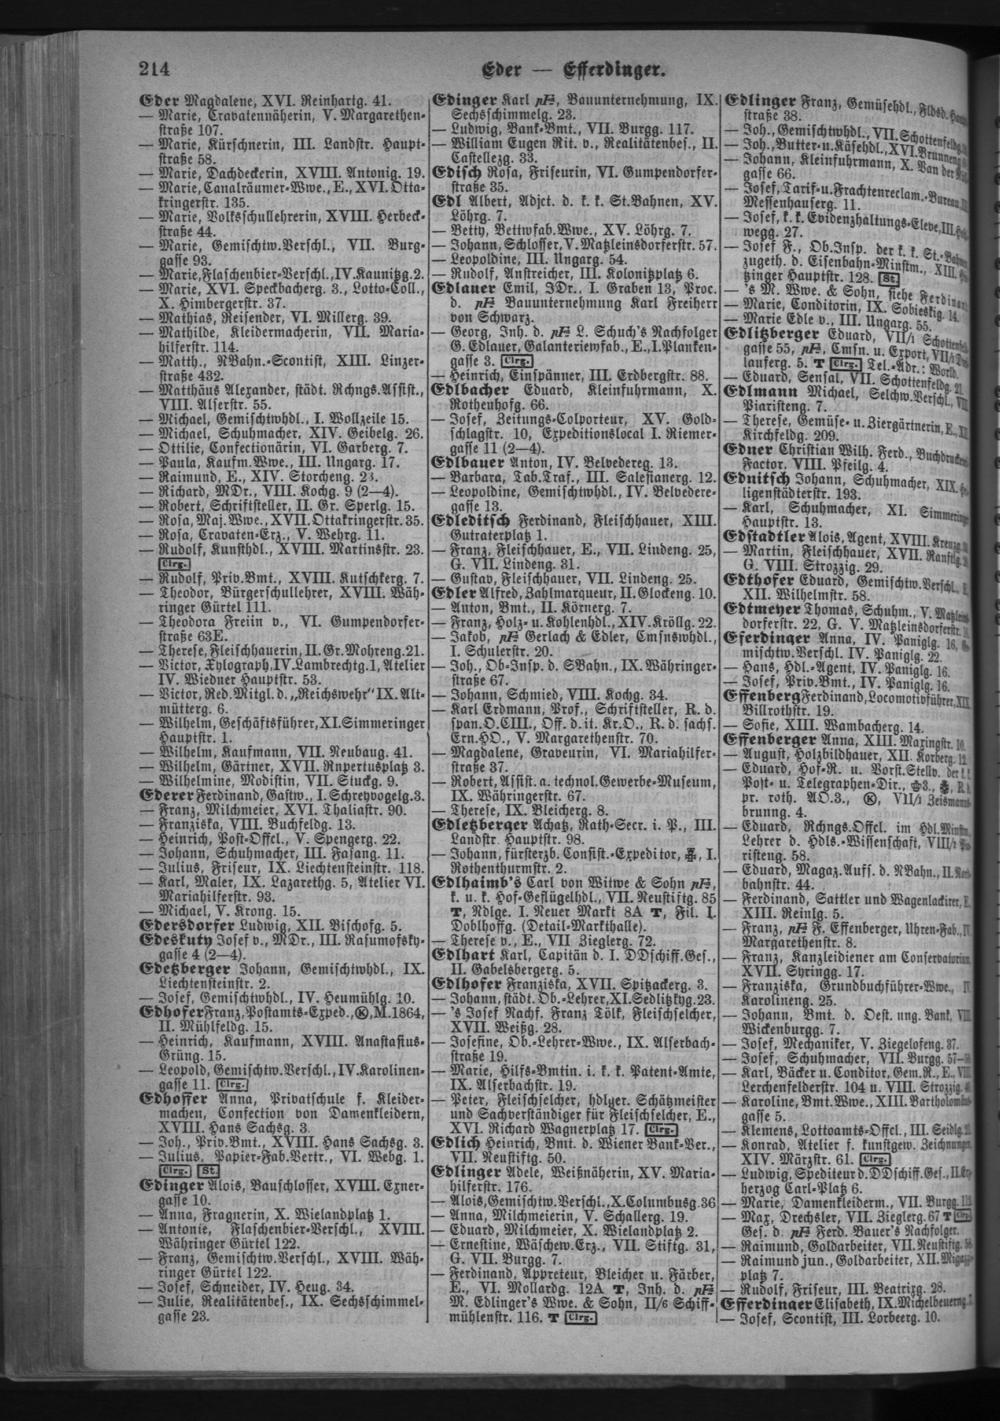 214
Eder — Efferdinger.
Eder Magdalene, XVI. Reinhartg. 41.
— Marie, Cravatennäherin, V. Margarethen-
straße 107.
— Marie, Kürschnerin, III. Landstr. Haupt-
straße 58.
— Marie, Dachdeckerin, XVIII. Antonig. 19.
— Marie, Canalräumer-Wwe., E., XVI. Otta-
kringerstr. 135.
— Marie, Volksschullehrerin, XVIII. Herbeck-
straße 44.
— Marie, Gemischtw.Verschl., VII. Burg-
gasse 93.
— Marie, Flaschenbier-Verschl., IV. Kaunitzg. 2.
— Marie, XVI. Speckbacherg. 3., Lotto-Coll.,
X. Himbergerstr. 37.
— Mathias, Reisender, VI. Millerg. 39.
— Mathilde, Kleidermacherin, VII. Maria-
hilferstr. 114.
— Matth., NBahn.-Scontist, XIII. Linzer-
straße 432.
— Matthäus Alexander, städt. Rchngs.Assist.,
VIII. Alserstr. 55.
— Michael, Gemischtwhdl., I. Wollzeile 15.
— Michael, Schuhmacher, XIV. Geibelg. 26.
— Ottilie, Confectionärin, VI. Garberg. 7.
— Paula, Kaufm.Wwe., III. Ungarg. 17.
— Raimund, E., XIV. Storcheng. 23.
— Richard, MDr., VIII. Kochg. 9 (2—4).
— Robert, Schriftsteller, II. Gr. Sperlg. 15.
— Rosa, Maj.Wwe., XVII. Ottakringerstr. 35.
— Rosa, Cravaten-Erz., V. Wehrg. 11.
— Rudolf, Kunsthdl., XVIII. Martinsstr. 23.
Clrg.
— Rudolf, Priv.Bmt., XVIII. Kutschkerg. 7.
— Theodor, Bürgerschullehrer, XVIII. Wäh-
ringer Gürtel 111.
— Theodora Freiin v., VI. Gumpendorfer-
straße 63E.
— Therese, Fleischhauerin, II. Gr. Mohreng. 21.
— Victor, Xylograph, IV. Lambrechtg. 1, Atelier
IV. Wiedner Hauptstr. 53.
— Victor, Red.Mitgl. d. „Reichswehr“ IX. Alt-
mütterg. 6.
— Wilhelm, Geschäftsführer, XI. Simmeringer
Hauptstr. 1.
— Wilhelm, Kaufmann, VII. Neubaug. 41.
— Wilhelm, Gärtner, XVII. Rupertusplatz 3.
— Wilhelmine, Modistin, VII. Stuckg. 9.
Ederer Ferdinand, Gastw., I. Schreyvogelg. 3.
— Franz, Milchmeier, XVI. Thaliastr. 90.
— Franziska, VIII. Buchfeldg. 13.
— Heinrich, Post-Offcl., V. Spengerg. 22.
— Johann, Schuhmacher, III. Fasang. 11.
— Julius, Friseur, IX. Liechtensteinstr. 118.
— Karl, Maler, IX. Lazarethg. 5, Atelier VI.
Mariahilferstr. 93.
— Michael, V. Krong. 15.
Edersdorfer Ludwig, XII. Bischofg. 5.
Edeskuty Josef v., MDr., III. Rasumofsky-
gasse 4 (2—4).
Edetzberger Johann, Gemischtwhdl., IX.
Liechtensteinstr. 2.
— Josef, Gemischtwhdl., IV. Heumühlg. 10.
Edhofer Franz, Postamts-Exped., Ⓚ, M. 1864,
II. Mühlfeldg. 15.
— Heinrich, Kaufmann, XVIII. Anastasius-
Grüng. 15.
— Leopold, Gemischtw.Verschl., IV. Karolinen-
gasse 11. Clrg.
Edhoffer Anna, Privatschule f. Kleider-
machen, Confection von Damenkleidern,
XVIII. Hans Sachsg. 3.
— Joh., Priv.Bmt., XVIII. Hans Sachsg. 3.
— Julius, Papier-Fab.Vertr., VI. Webg. 1.
Clrg. St.
Edinger Alois, Bauschlosser, XVIII. Exner-
gasse 10.
— Anna, Fragnerin, X. Wielandplatz 1.
— Antonie, Flaschenbier-Verschl., XVIII.
Währinger Gürtel 122.
— Franz, Gemischtw.Verschl., XVIII. Wäh-
ringer Gürtel 122.
— Josef, Schneider, IV. Heug. 34.
— Julie, Realitätenbes., IX. Sechsschimmel-
gasse 23.
Edinger Karl, Bauunternehmung, IX.
Sechsschimmelg. 23.
— Ludwig, Bank-Bmt., VII. Burgg. 117.
— William Eugen Rit. v., Realitätenbes., II.
Castellezg. 33.
Edisch Rosa, Friseurin, VI. Gumpendorfer-
straße 35.
Edl Albert, Adjct. d. k. k. St.Bahnen, XV.
Löhrg. 7.
— Betty, Bettwfab.Wwe., XV. Löhrg. 7.
— Johann, Schlosser, V. Matzleinsdorferstr. 57.
— Leopoldine, III. Ungarg. 54.
— Rudolf, Anstreicher, III. Kolonitzplatz 6.
Edlauer Emil, JDr., I. Graben 13, Proc.
d. Bauunternehmung Karl Freiherr
von Schwarz.
— Georg, Inh. d. L. Schuch's Nachfolger
G. Edlauer, Galanteriewfab., E., I. Planken-
gasse 3. Clrg.
— Heinrich, Einspänner, III. Erdbergstr. 88.
Edlbacher Eduard, Kleinfuhrmann, X.
Rothenhofg. 66.
— Josef, Zeitungs-Colporteur, XV. Gold-
schlagstr. 10, Expeditionslocal I. Riemer-
gasse 11 (2—4).
Edlbauer Anton, IV. Belvedereg. 13.
— Barbara, Tab.Traf., III. Salesianerg. 12.
— Leopoldine, Gemischtwhdl., IV. Belvedere-
gasse 13.
Edleditsch Ferdinand, Fleischhauer, XIII.
Gutraterplatz 1.
— Franz, Fleischhauer, E., VII. Lindeng. 25,
G. VII. Lindeng. 31.
— Gustav, Fleischhauer, VII. Lindeng. 25.
Edler Alfred, Zahlmarqueur, II. Glockeng. 10.
— Anton, Bmt., II. Körnerg. 7.
— Franz, Holz- u. Kohlenhdl., XIV. Kröllg. 22.
— Jakob, Gerlach & Edler, Cmsnswhdl.,
I. Schulerstr. 20.
— Joh., Ob-Insp. d. SBahn., IX. Währinger-
straße 67.
— Johann, Schmied, VIII. Kochg. 34.
— Karl Erdmann, Prof., Schriftsteller, R. d.
span.O.CIII., Off. d. it. Kr.O., R. d. sachs.
Ern.HO., V. Margarethenstr. 70.
— Magdalene, Graveurin, VI. Mariahilfer-
straße 37.
— Robert, Assist. a. technol.Gewerbe-Museum,
IX. Währingerstr. 67.
— Therese, IX. Bleicherg. 8.
Edletzberger Achatz, Rath-Secr. i. P., III.
Landstr. Hauptstr. 98.
— Johann, fürsterzb. Consist.-Expeditor, I.
Rothenthurmstr. 2.
Edlhaimb's Carl von Witwe & Sohn,
k. u. k. Hof-Geflügelhdl., VII. Neustiftg. 85
T, Ndlge. I. Neuer Markt 8A T, Fil. I.
Doblhoffg. (Detail-Markthalle).
— Therese v., E., VII Zieglerg. 72.
Edlhart Karl, Capitän d. I. DDschiff.Ges.,
II. Gabelsbergerg. 5.
Edlhofer Franziska, XVII. Spitzackerg. 3.
— Johann, städt. Ob.-Lehrer, XI. Sedlitzkyg. 23.
— 's Josef Nachf. Franz Tölk, Fleischselcher,
XVII. Weißg. 28.
— Josefine, Ob.-Lehrer-Wwe., IX. Alserbach-
straße 19.
— Marie, Hilfs-Bmtin. i. k. k. Patent-Amte,
IX. Alserbachstr. 19.
— Peter, Fleischselcher, hdlger. Schätzmeister
und Sachverständiger für Fleischselcher, E.,
XVI. Richard Wagnerplatz 17. Clrg.
Edlich Heinrich, Bmt. d. Wiener Bank-Ver.,
VII. Neustiftg. 50.
Edlinger Adele, Weißnäherin, XV. Maria-
hilferstr. 176.
— Alois, Gemischtw.Verschl., X. Columbusg. 36
— Anna, Milchmeierin, V. Schallerg. 19.
— Eduard, Milchmeier, X. Wielandplatz 2.
— Ernestine, Wäschew.Erz., VII. Stiftg. 31,
G. VII. Burgg. 7.
— Ferdinand, Appreteur, Bleicher u. Färber,
E., VI. Mollardg. 12A T, Inh. d.
M. Edlinger's Wwe. & Sohn, II/6 Schiff-
mühlenstr. 116. T Clrg.
Edlinger Franz, Gemüsehdl.,
straße 38.
— Joh., Gemischtwhdl., VII. Schottenfeldg.
— Joh., Butter- u. Käsehdl., XVI. Brunneng.
— Johann, Kleinfuhrmann, X. Van der
gasse 66.
— Josef, Tarif- u. Frachtenreclam.-Bureau,
Messenhauserg. 11.
— Josef, k. k. Evidenzhaltungs-Eleve, III.
wegg. 27.
— Josef F., Ob.Insp. der k. k. St.-Bahnen
zugeth. d. Eisenbahn-Minstm., XIII.
tzinger Hauptstr. 128. St.
— 's M. Wwe. & Sohn, siehe Ferdinand
— Marie, Conditorin, IX. Sobieskig. 14.
— Marie Edle v., III. Ungarg. 55.
Edlitzberger Eduard, VII/1 Schottenfeld-
gasse 55, Cmsn. u. Export, VII/1
lauferg. 5. T Clrg. Tel.-Adr.: World.
— Eduard, Sensal, VII. Schottenfeldg. 21.
Edlmann Michael, Selchw.Verschl., VIII
Piaristeng. 7.
— Therese, Gemüse- u. Ziergärtnerin, E.,
Kirchfeldg. 209.
Edner Christian Wilh. Ferd., Buchdruckerei
Factor. VIII. Pfeilg. 4.
Ednitsch Johann, Schuhmacher, XIX.
ligenstädterstr. 193.
— Karl, Schuhmacher, XI. Simmeringer
Hauptstr. 13.
Edstadtler Alois, Agent, XVIII. Kreuzg.
— Martin, Fleischhauer, XVII. Ranftlg.
G. VIII. Strozzig. 29.
Edthofer Eduard, Gemischtw.Verschl., E.
XII. Wilhelmstr. 58.
Edtmeyer Thomas, Schuhm., V. Matzleins-
dorferstr. 22, G. V. Matzleinsdorferstr.
Eferdinger Anna, IV. Paniglg. 16,
mischtw.Verschl. IV. Paniglg. 22.
— Hans, Hdl.-Agent, IV. Paniglg. 16.
— Josef, Priv.Bmt., IV. Paniglg. 16.
Effenberg Ferdinand, Locomotivführer, XIX.
Billrothstr. 19.
— Sofie, XIII. Wambacherg. 14.
Effenberger Anna, XIII. Maxingstr. 10.
— August, Holzbildhauer, XII. Korberg. 12
— Eduard, Hof-R. u. Vorst.Stellv. der k. k.
Post- u. Telegraphen-Dir.,
pr. roth. AO.3., Ⓚ, VII/1 Zeismanns-
brunng. 4.
— Eduard, Rchngs.Offcl. im Hdl.Minstm.
Lehrer d. Hdls.-Wissenschaft, VIII/1 Pia-
risteng. 58.
— Eduard, Magaz.Auff. d. NBahn., II. Nord-
bahnstr. 44.
— Ferdinand, Sattler und Wagenlackirer, E.
XIII. Reinlg. 5.
— Franz, F. Effenberger, Uhren-Fab., IV.
Margarethenstr. 8.
— Franz, Kanzleidiener am Conservatorium,
XVII. Syringg. 17.
— Franziska, Grundbuchführer-Wwe., IV
Karolineng. 25.
— Johann, Bmt. d. Oest. ung. Bank, VIII
Wickenburgg. 7.
— Josef, Mechaniker, V. Ziegelofeng. 37.
— Josef, Schuhmacher, VII. Burgg. 57—
— Karl, Bäcker u. Conditor, Gem.R., E., VIII.
Lerchenfelderstr. 104 u. VIII. Strozzig.
— Karoline, Bmt.Wwe., XIII. Bartholomäus-
gasse 5.
— Klemens, Lottoamts-Offcl., III. Seidlg.
— Konrad, Atelier f. kunstgew. Zeichnungen
XIV. Märzstr. 61. Clrg.
— Ludwig, Spediteur d. DDschiff.Ges., II. Erz-
herzog Carl-Platz 6.
— Marie, Damenkleiderm., VII. Burgg.
— Max, Drechsler, VII. Zieglerg. 67 T Clrg.
Ges. d. Ferd. Bauer's Nachfolger.
— Raimund, Goldarbeiter, VII. Neustiftg.
— Raimund jun., Goldarbeiter, XII. Migazzi-
platz 7.
— Rudolf, Friseur, III. Beatrixg. 28.
Efferdinger Elisabeth, IX. Michelbeuerng.
— Josef, Scontist, III. Lorbeerg. 10.